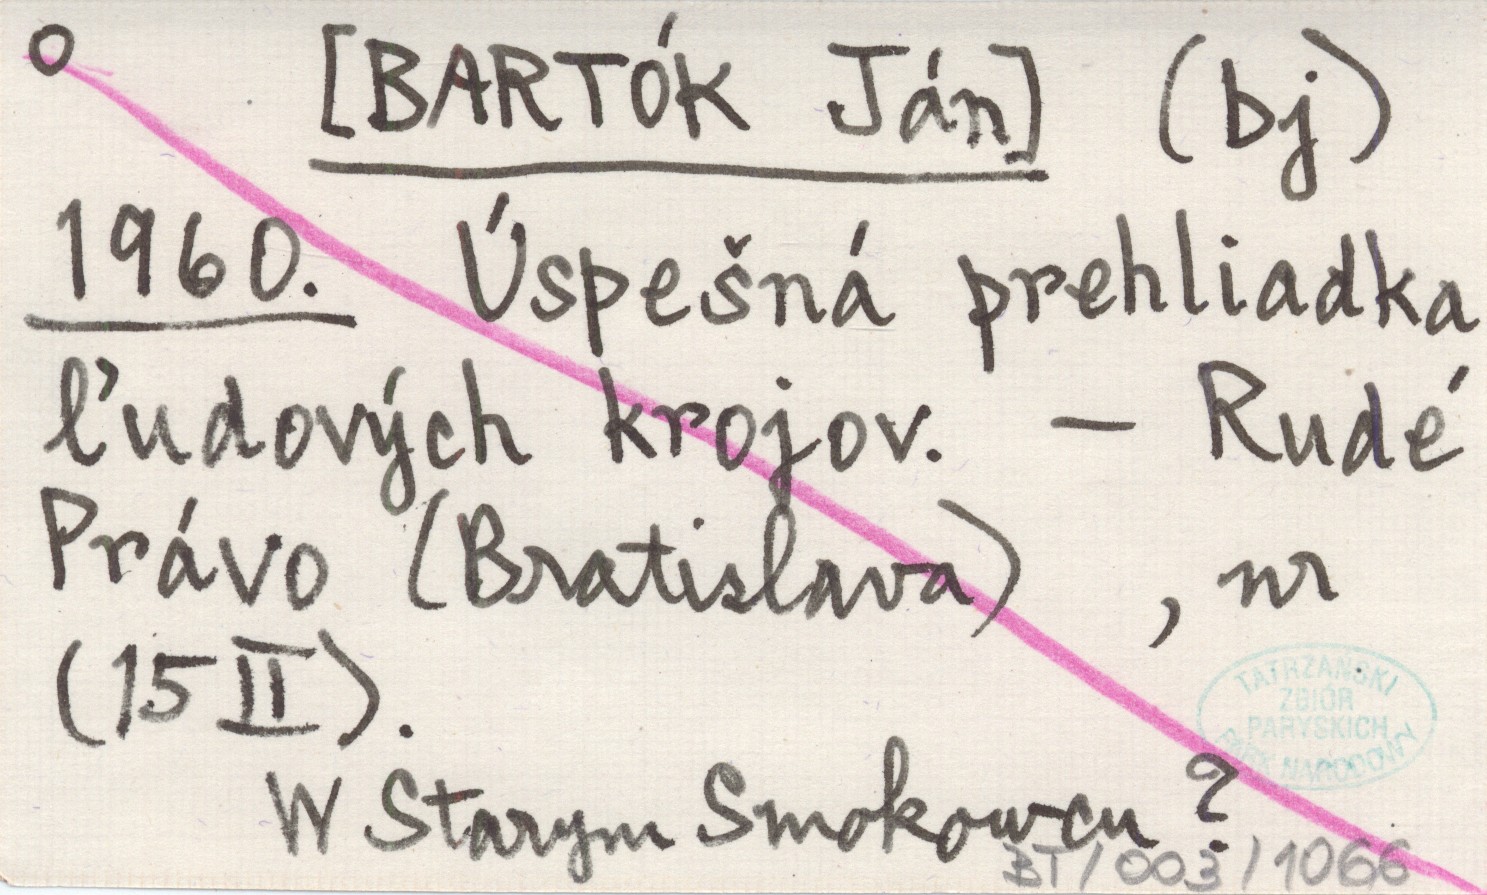 [BARTÓK Ján] (bj)
1960. Úspešná prehliadka
ľudových krojov. – Rudé
Právo (Bratislava) , nr
(15 II).
W Starym Smokowcu ?
TATRZAŃSKI
ZBIÓR
PARYSKICH
PARK NARODOWY
BT/003/1066